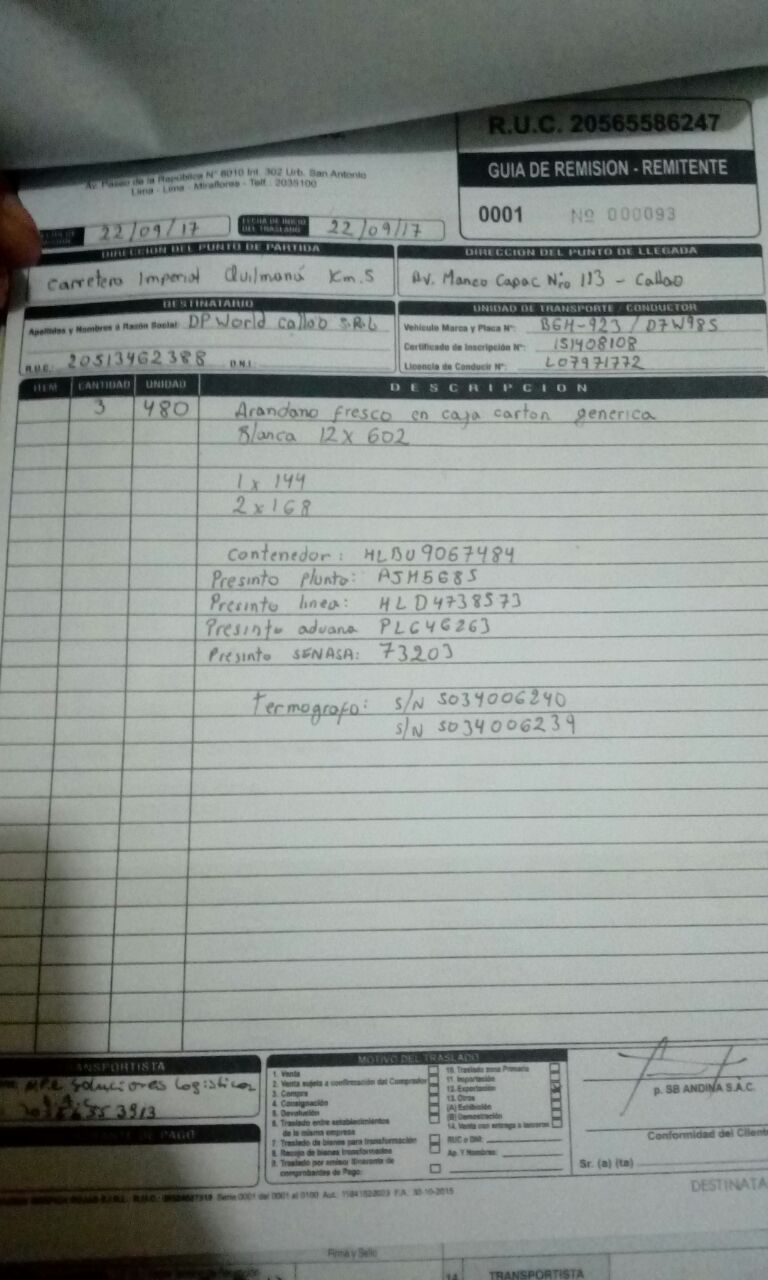 R.U.C. 20565586247
GUIA DE REMISION - REMITENTE
0001 Nº 000093
Av. Paseo de la República N° 6010 Int. 302 Urb. San Antonio
Lima - Lima - Miraflores - Telf.: 2035100
22/09/17
FECHA DE INICIO DEL TRASLADO 22/09/17
DIRECCION DEL PUNTO DE PARTIDA
Carretera Imperial Quilmaná Km.5
DIRECCION DEL PUNTO DE LLEGADA
Av. Manco Capac Nro 113 - Callao
DESTINATARIO
Apellidos y Nombres ó Razón Social: DP World Callao S.R.L
R.U.C.: 20513462388 D.N.I.:
UNIDAD DE TRANSPORTE / CONDUCTOR
Vehículo Marca y Placa N°: B6H-923 / D7W985
Certificado de Inscripción N°: 151408108
Licencia de Conducir N°: L07971772
ITEM CANTIDAD UNIDAD DESCRIPCION
3 480 Arandano fresco en caja carton generica
Blanca 12 x 602
1 x 144
2 x 168
Contenedor: HLBU9067484
Presinto plunto: ASM5685
Presinto linea: HLD4738573
Presinto aduana PLG46263
Presinto SENASA: 73203
Termografo: S/N S034006240
S/N S034006239
TRANSPORTISTA
Soluciones Logisticas
MOTIVO DEL TRASLADO
1. Venta
2. Venta sujeta a confirmación del Comprador
3. Compra
4. Consignación
5. Devolución
6. Traslado entre establecimientos
de la misma empresa
7. Traslado de bienes para transformación
8. Recojo de bienes transformados
9. Traslado por emisor itinerante de
comprobantes de Pago:
10. Traslado zona Primaria
11. Importación
12. Exportación
13. Otros
(A) Exhibición
(B) Demostración
14. Venta con entrega a terceros
RUC o DNI:
Ap. Y Nombres:
p. SB ANDINA S.A.C.
Conformidad del Client
Sr. (a) (ta)
DESTINATA
Serie 0001 del 0001 al 0100 F.A. 30-10-2015
Firma y Sello
TRANSPORTISTA